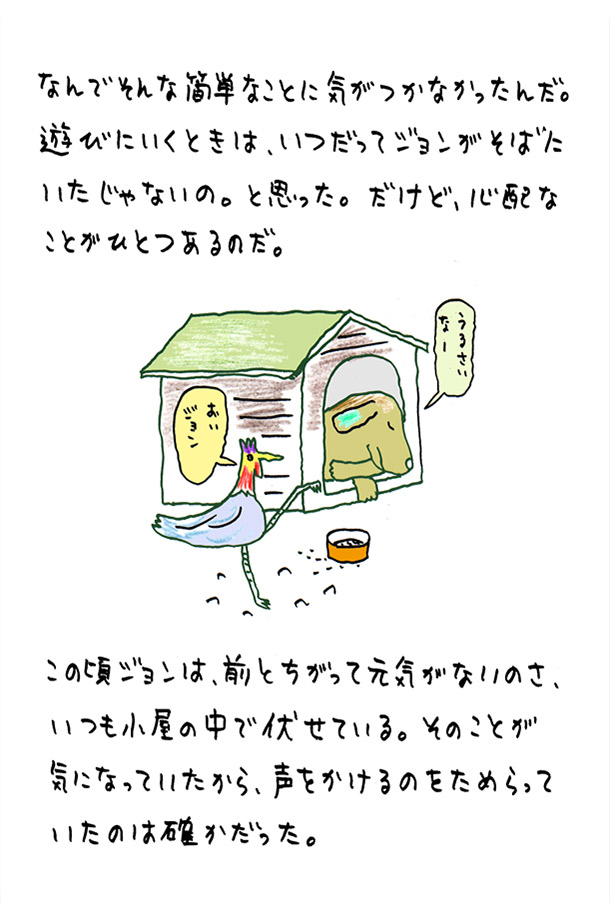 なんでそんな簡単なことに気がつかなかったんだ。
遊びにいくときは、いつだってジョンがそばに
いたじゃないの。と思った。だけど、心配な
ことがひとつあるのだ。
うるさい
なー
おい
ジョン
この頃ジョンは、前とちがって元気がないのさ、
いつも小屋の中で伏せている。そのことが
気になっていたから、声をかけるのをためらって
いたのは確かだった。